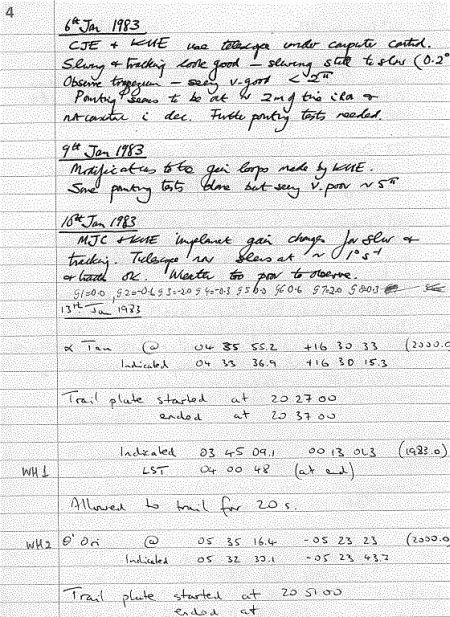 4
6th Jan 1983
CJE + KME use telescope under computer control.
Slewing & tracking look good – slewing still to slow (0.2°
Observe trapezium – seeing v. good < 2"
Pointing seems to be out ~ 2m of time in RA &
in dec. Further pointing tests needed.
9th Jan 1983
Modifications to the gain loops made by KME.
Some pointing tests done but seeing v. poor ~ 5"
10th Jan 1983
MJC + KME implement gain changes for slew &
tracking. Telescope now slews at ~ 1° s⁻¹
& tracks OK. Weather too poor to observe.
13th Jan 1983
α Tau @ 04 35 55.2 +16 30 33 (2000.0
Indicated 04 33 36.9 +16 30 15.3
Trail plate started at 20 27 00
ended at 20 37 00
Indicated 03 45 09.1 00 13 01.3 (1983.0)
WH1 LST 04 00 48 (at end)
Allowed to trail for 20 s.
WH2 θ' Ori @ 05 35 16.4 -05 23 23 (2000.0
Indicated 05 32 30.1 -05 23 43.2
Trail plate started at 20 51 00
ended at